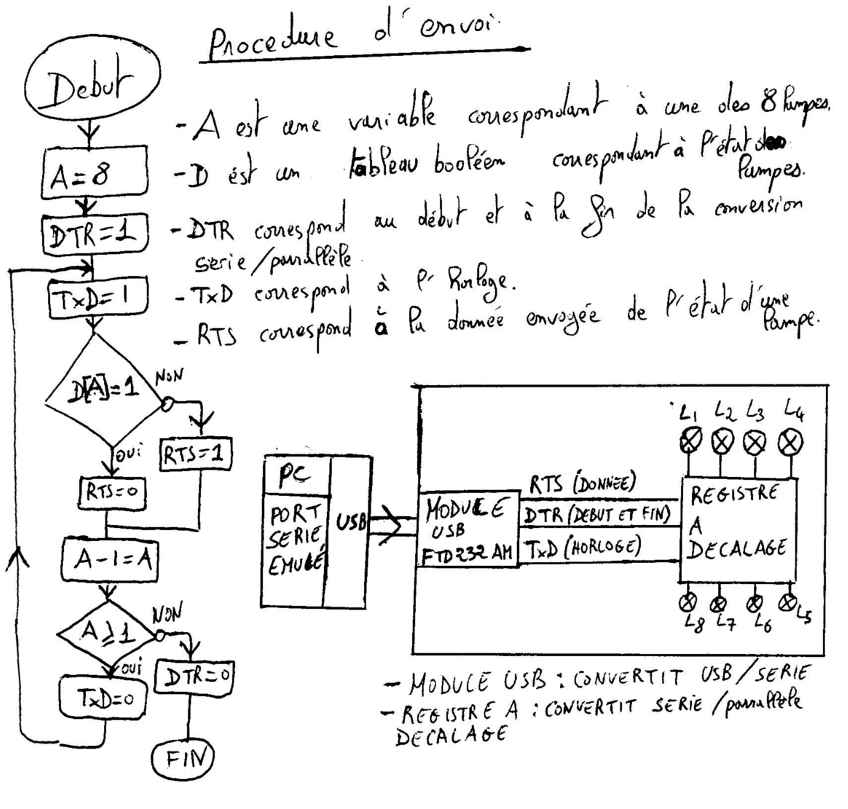 Procedure d'envoi.
Debut
A=8
DTR=1
TxD=1
D[A]=1
NON
OUI
RTS=1
RTS=0
A-1=A
A⩾1
NON
OUI
DTR=0
TxD=0
FIN
- A est une variable correspondant à une des 8 Pampes.
- D ést un tableau booléen correspondant à l'état des
Pampes.
- DTR correspond au début et à la fin de la conversion
serie/parallèle.
- TxD correspond à l'Horloge.
- RTS correspond à la donnée envoyée de l'état d'une
Pampe.
PC
PORT
SERIE
EMULÉ
USB
MODULE
USB
FTD232AM
RTS (DONNEE)
DTR (DEBUT ET FIN)
TxD (HORLOGE)
L1 L2 L3 L4
REGISTRE
A
DECALAGE
L8 L7 L6 L5
- MODULE USB : CONVERTIT USB/SERIE
- REGISTRE A : CONVERTIT SERIE/parallèle
DECALAGE